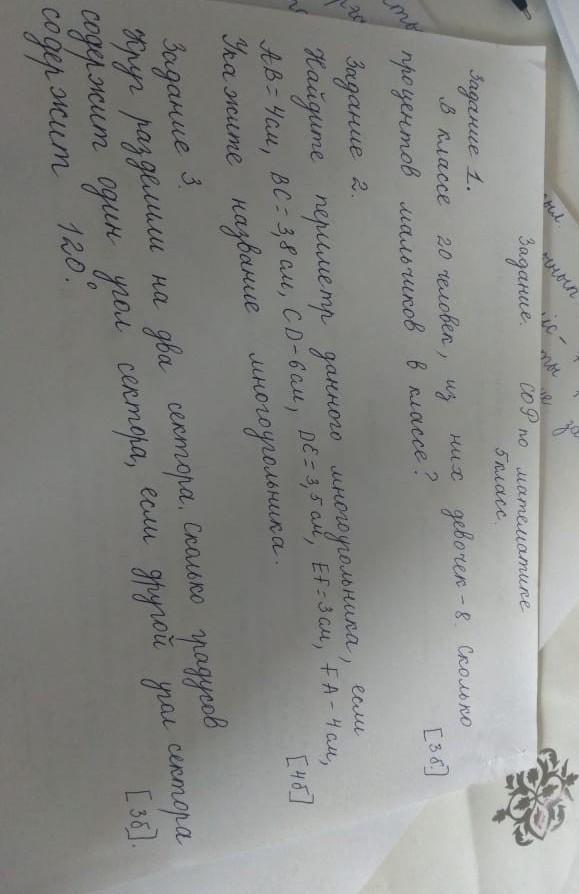 Задание. СОР по математике
5 класс.
Задание 1.
В классе 20 человек, из них девочек - 8. Сколько
процентов мальчиков в классе?
[3б.]
Задание 2.
Найдите периметр данного многоугольника, если
AB = 4 см, BC = 3,8 см, CD - 6 см, DE = 3,5 см, EF = 3 см, FA - 4 см,
Укажите название многоугольника.
[4б]
Задание 3.
Круг разделили на два сектора. Сколько градусов
содержит один угол сектора, если другой угол сектора
содержит 120°.
[3б].